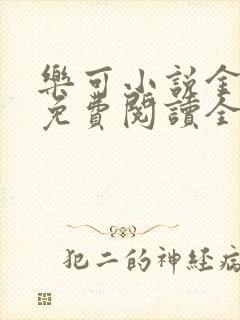 樂可小說全
免費閱讀全
犯二的神經病